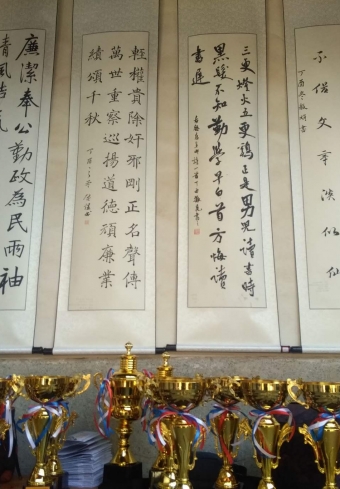 不俗文章淡似仙
丁酉冬
三更燈火五更鷄正是男兒讀書時
黑髮不知勤學早白首方悔讀
書遲
輕權貴除奸邪剛正名聲傳
萬世重察巡揚道德頌廉業
績頌千秋
丁酉之冬
廉潔奉公勤政為民兩袖
清風